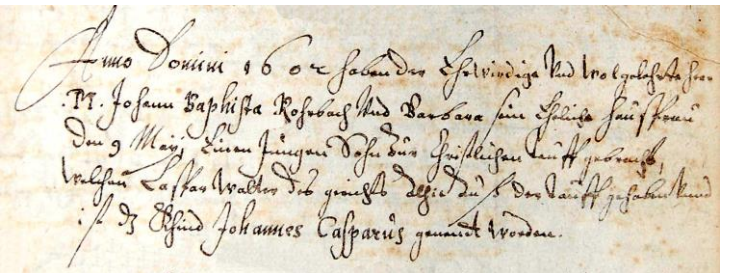 Anno Domini 1602 haben der Ehrwirdige Und Wolgelehrte herr
M. Johann Baphista Rohrbach Und Barbara sein Eheliche haussfrau
Den 9 May, Einen Jungen Sohn zur Christlichen tauff gebracht,
Welchen Caspar Walter des gerichts der tauff gehaben Unnd
ist dz Khind Johannes Casparus genendt worden.